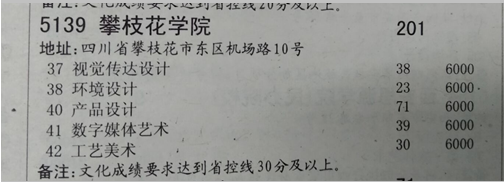 备注:文化成绩要求达到省控线20分及以上。
5139 攀枝花学院 201
地址:四川省攀枝花市东区机场路10号
37 视觉传达设计 38 6000
38 环境设计 23 6000
40 产品设计 71 6000
41 数字媒体艺术 39 6000
42 工艺美术 30 6000
备注:文化成绩要求达到省控线30分及以上。